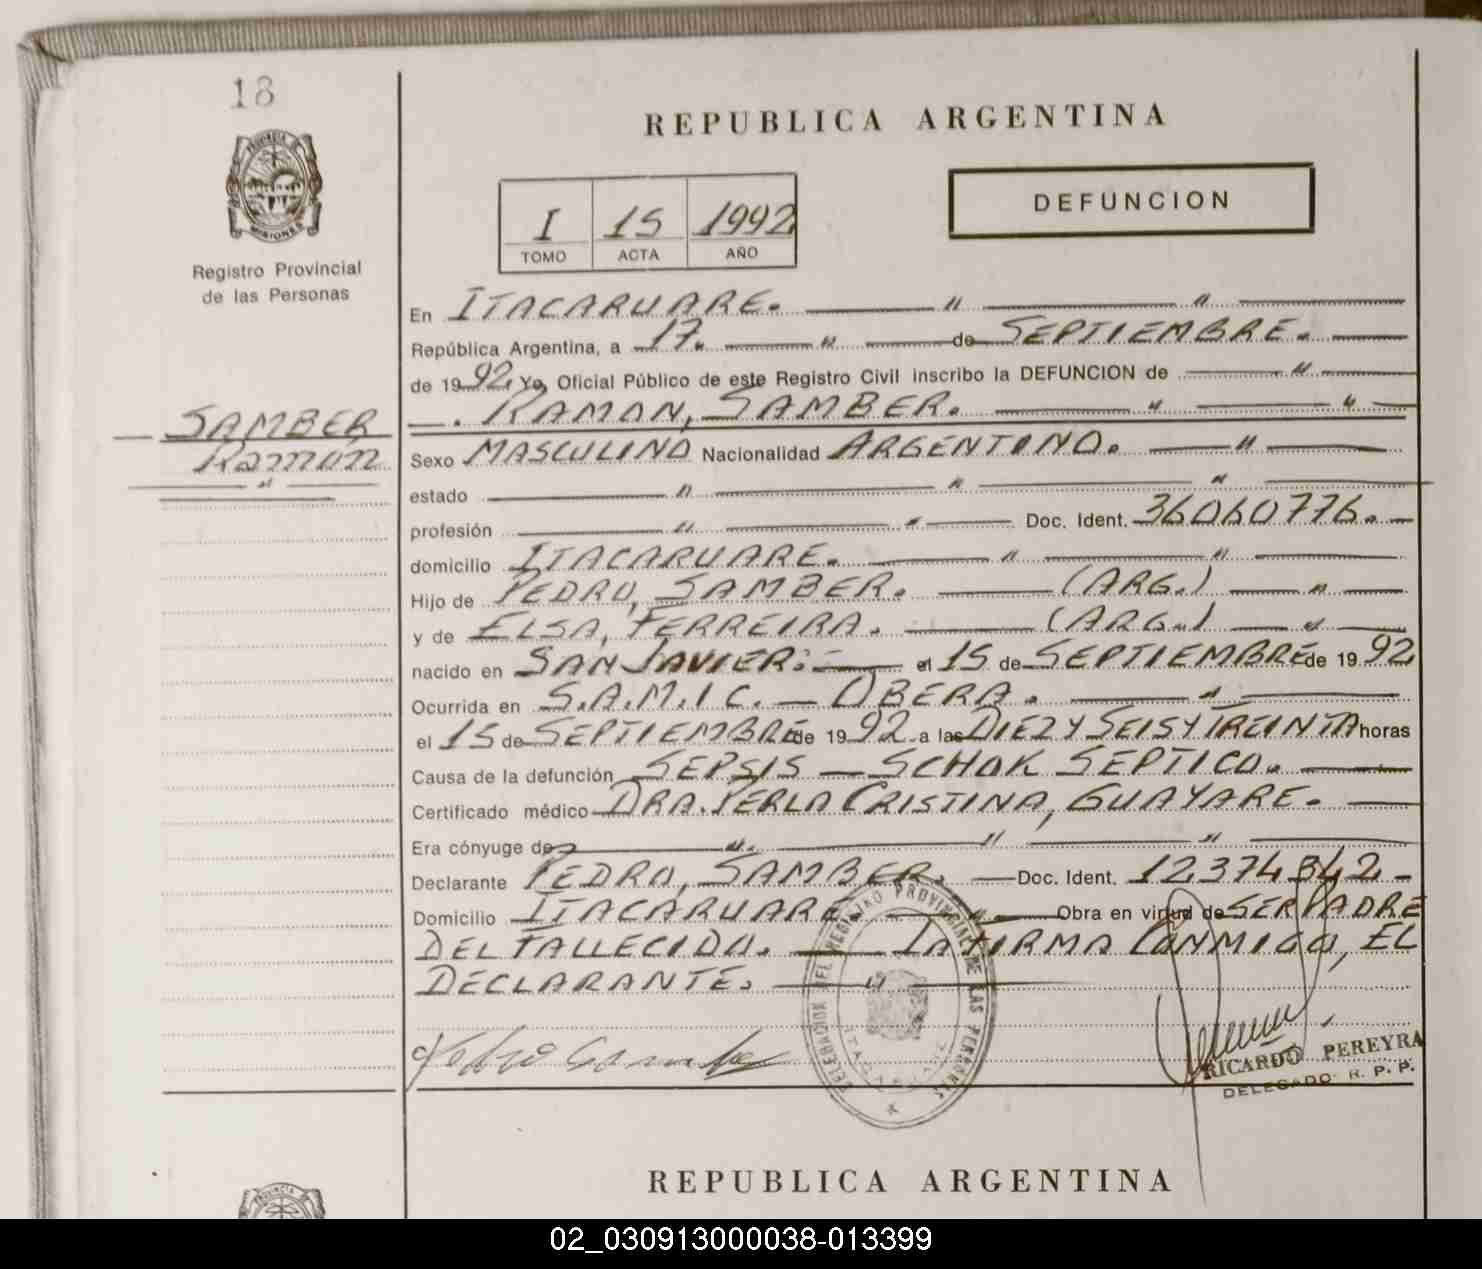 18
REPUBLICA ARGENTINA
PROVINCIA DE MISIONES
Registro Provincial
de las Personas
I 15 1992
TOMO ACTA AÑO
DEFUNCION
En ITACARUARE.
República Argentina, a 17. de SEPTIEMBRE.
de 1992 Yo, Oficial Público de este Registro Civil inscribo la DEFUNCION de
RAMON, SAMBER.
SAMBER
Ramón
Sexo MASCULINO Nacionalidad ARGENTINO.
estado
profesión Doc. Ident. 36060776.
domicilio ITACARUARE.
Hijo de PEDRO, SAMBER. (ARG.)
y de ELSA, FERREIRA. (ARG.)
nacido en SAN JAVIER: el 15 de SEPTIEMBRE de 1992
Ocurrida en S.A.M.I C. - OBERA.
el 15 de SEPTIEMBRE de 1992 a las DIEZ Y SEIS Y TREINTA horas
Causa de la defunción SEPSIS - SCHOK SEPTICO.
Certificado médico DRA. PERLA CRISTINA, GUAYARE.
Era cónyuge de
Declarante PEDRO, SAMBER. Doc. Ident. 12.374.842
Domicilio ITACARUARE. Obra en virtud de SER PADRE
DEL FALLECIDO. LA FIRMA CONMIGO, EL
DECLARANTE.
DELEGACION DEL REGISTRO PROVINCIAL DE LAS PERSONAS
ITACARUARE
Pedro Samber
RICARDO PEREYRA
DELEGADO R. P. P.
REPUBLICA ARGENTINA
PROVINCIA DE
02_030913000038-013399